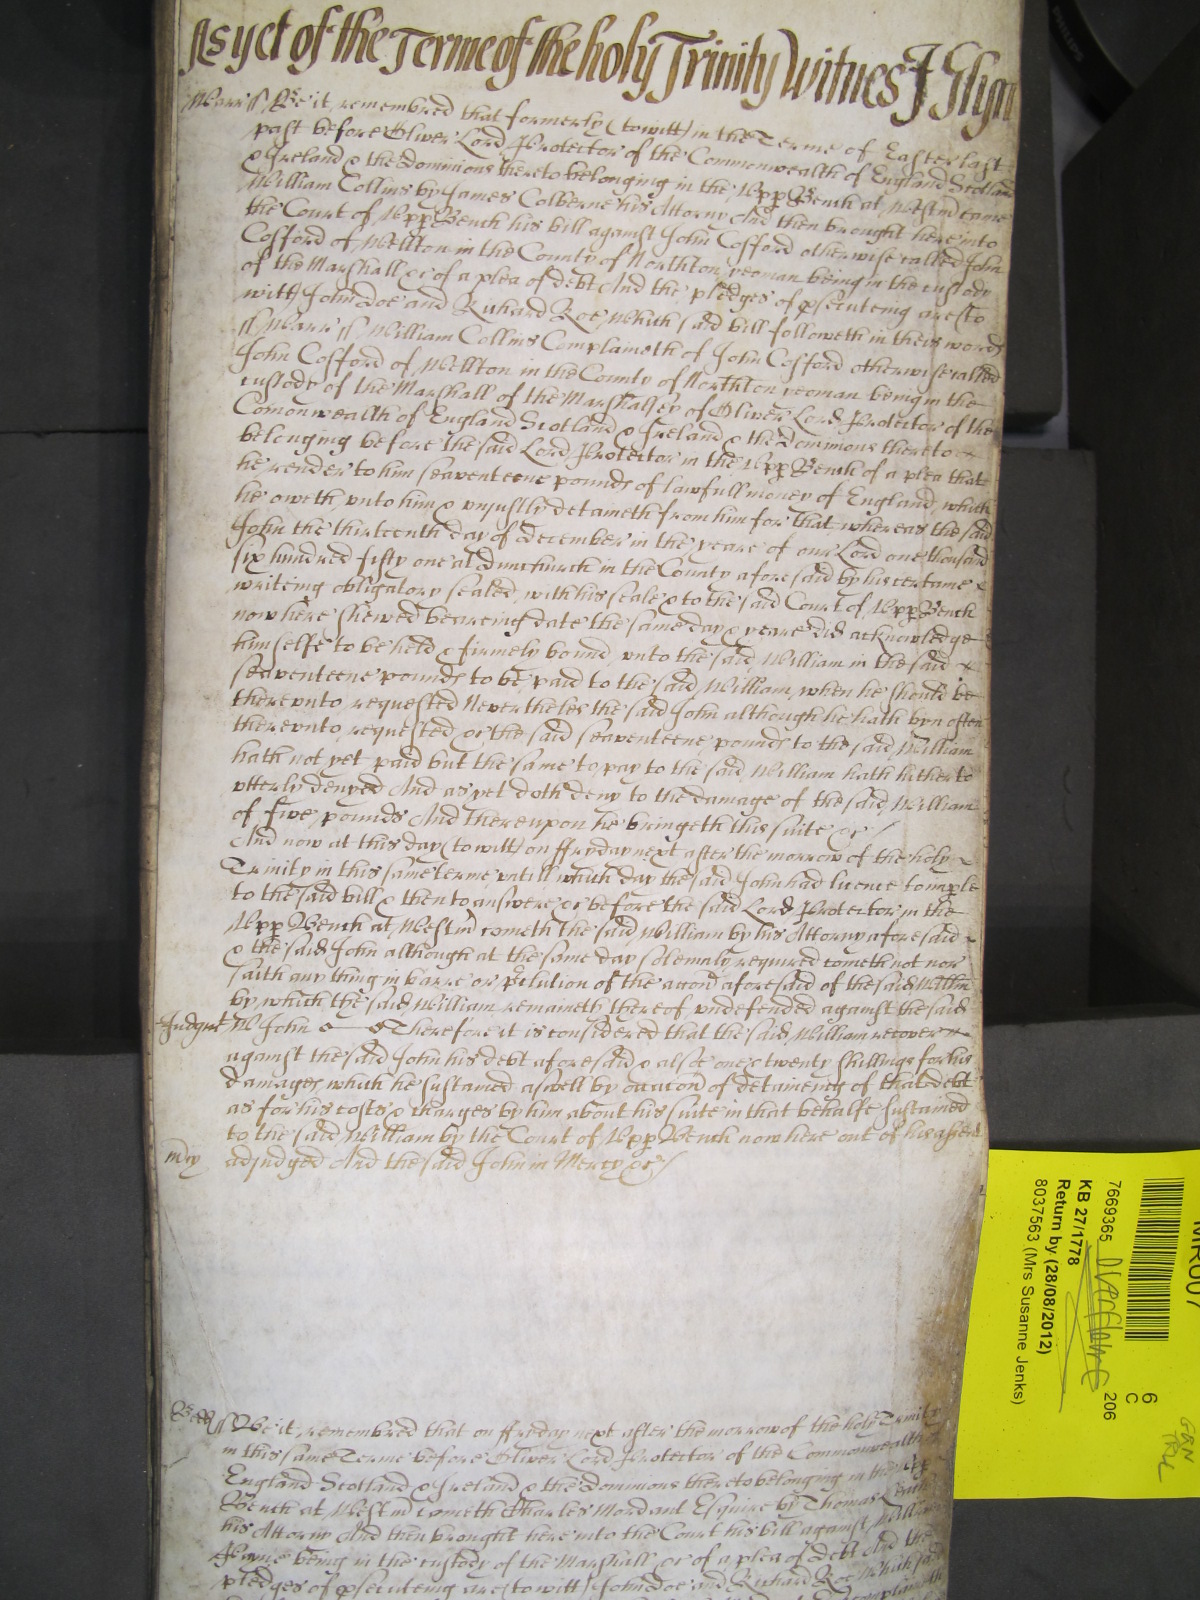 As yet of the Terme of the holy Trinity Witnes J Glyn
Warr ss Be it remembred that formerly (to witt) in the Terme of Easter last
past before Oliver Lord Protector of the Commonwealth of England Scotland
& Ireland & the Dominions thereto belonging in the Upp Bench at Westm came
William Collins by James Colberne his Attorny And then brought here into
the Court of Upp Bench his bill against John Cosford otherwise called John
Cosford of Wellton in the County of Northton yeoman being in the custody
of the Marshall &c of a plea of debt And the pledges of psecuteing are (to
witt) John Doe and Richard Roe Which said bill followeth in theis words
ss Warr ss William Collins Complaineth of John Cosford otherwise called
John Cosford of Wellton in the County of Northton yeoman being in the
custody of the Marshall of the Marshallsey of Oliver Lord Protector of the
Comonwealth of England Scotland & Ireland & the Dominions thereto
belonging before the said Lord Protector in the Upp Bench of a plea that
he render to him seaventeene pounds of lawfull money of England which
he oweth unto him & unjustly detaineth from him for that whereas the said
John the thirteenth day of December in the yeare of our Lord one thousand
six hundred fifty one at Dunchurch in the County aforesaid by his certaine
writeing obligatory sealed with his seale & to the said Court of Upp Bench
now here shewed beareing date the same day & yeare did acknowledge
himselfe to be held & firmely bound unto the said William in the said
seaventeene pounds to be paid to the said William when he should be
thereunto requested Nevertheles the said John although he hath byn often
thereunto requested &c the said seaventeene pounds to the said William
hath not yet paid but the same to pay to the said William hath hitherto
utterly denyed And as yet doth deny to the damage of the said William
of five pounds And thereupon he bringeth this suite &c /
And now at this day (to witt) on ffryday next after the morrow of the holy
Trinity in this same terme untill which day the said John had licence to imple
to the said bill & then to answere &c before the said Lord Protector in the
Upp Bench at Westm cometh the said William by his Attorny aforesaid
& the said John although at the same day solemnly required cometh not nor
saith any thing in barre or pclution of the accon aforesaid of the said Willm
by which the said William remaineth thereof undefended against the said
Judgmt John Therefore it is considered that the said William recover
against the said John his debt aforesaid & alsoe one & twenty shillings for his
damages which he sustained aswell by occacon of detaineing of that debt
as for his costs & charges by him about his suite in that behalfe sustained
to the said William by the Court of Upp Bench now here out of his assent
mcy adjudged And the said John in Mercy &c /
ss Be it remembred that on ffriday next after the morrow of the holy Trinity
in this same Terme before Oliver Lord Protector of the Commonwealth of
England Scotland & Ireland & the Dominions thereto belonging in the Upp
Bench at Westm cometh Charles Mordant Esquire by Thomas
his Attorny And then brought here into the Court his bill against William
being in the custody of the Marshall &c of a plea of debt And the
pledges of psecuteing are (to witt) John Doe and Richard Roe Which said
MR007
6
C
206
7669365
KB 27/1778
Return by (28/08/2012)
8037563 (Mrs Susanne Jenks)
PHILIPS